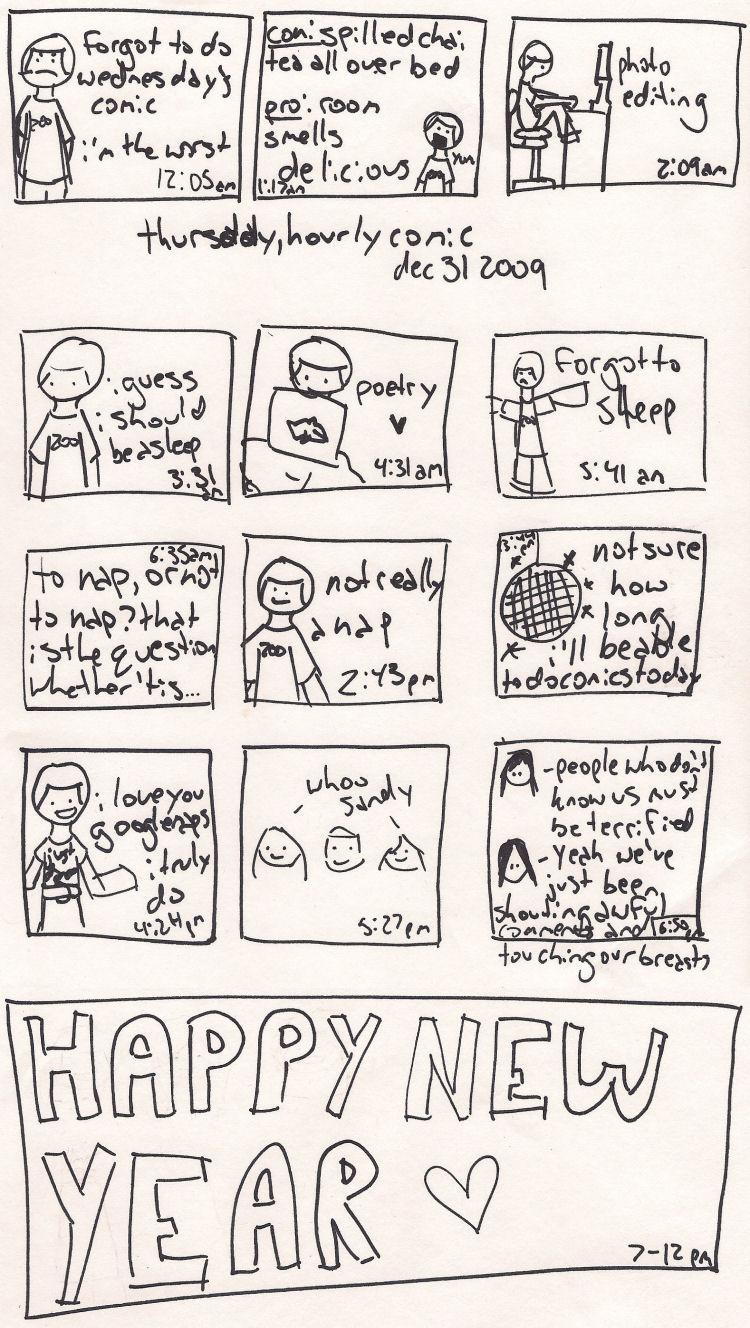 forgot to do
wednesday's
comic
i'm the worst
12:05am
zoo
con: spilled chai
tea all over bed
pro: room
smells
delicious
yum
1:17am
photo
editing
2:09am
thursday, hourly comic
dec 31 2009
i guess
i should
be asleep
zoo
3:31
am
poetry
4:31am
forgot to
sleep
5:41 am
6:35am
to nap, or not
to nap? that
is the question
whether 'tis...
not really
a nap
zoo
2:43pm
3:44
pm
not sure
how
long
i'll be able
to do comics today
i love you
google maps
i truly
do
4:24pm
whoo
sandy
5:27pm
-people who don't
know us must
be terrified
-yeah we've
just been
shouting awful
comments and
6:50pm
touching our breasts
HAPPY NEW
YEAR
7-12 pm